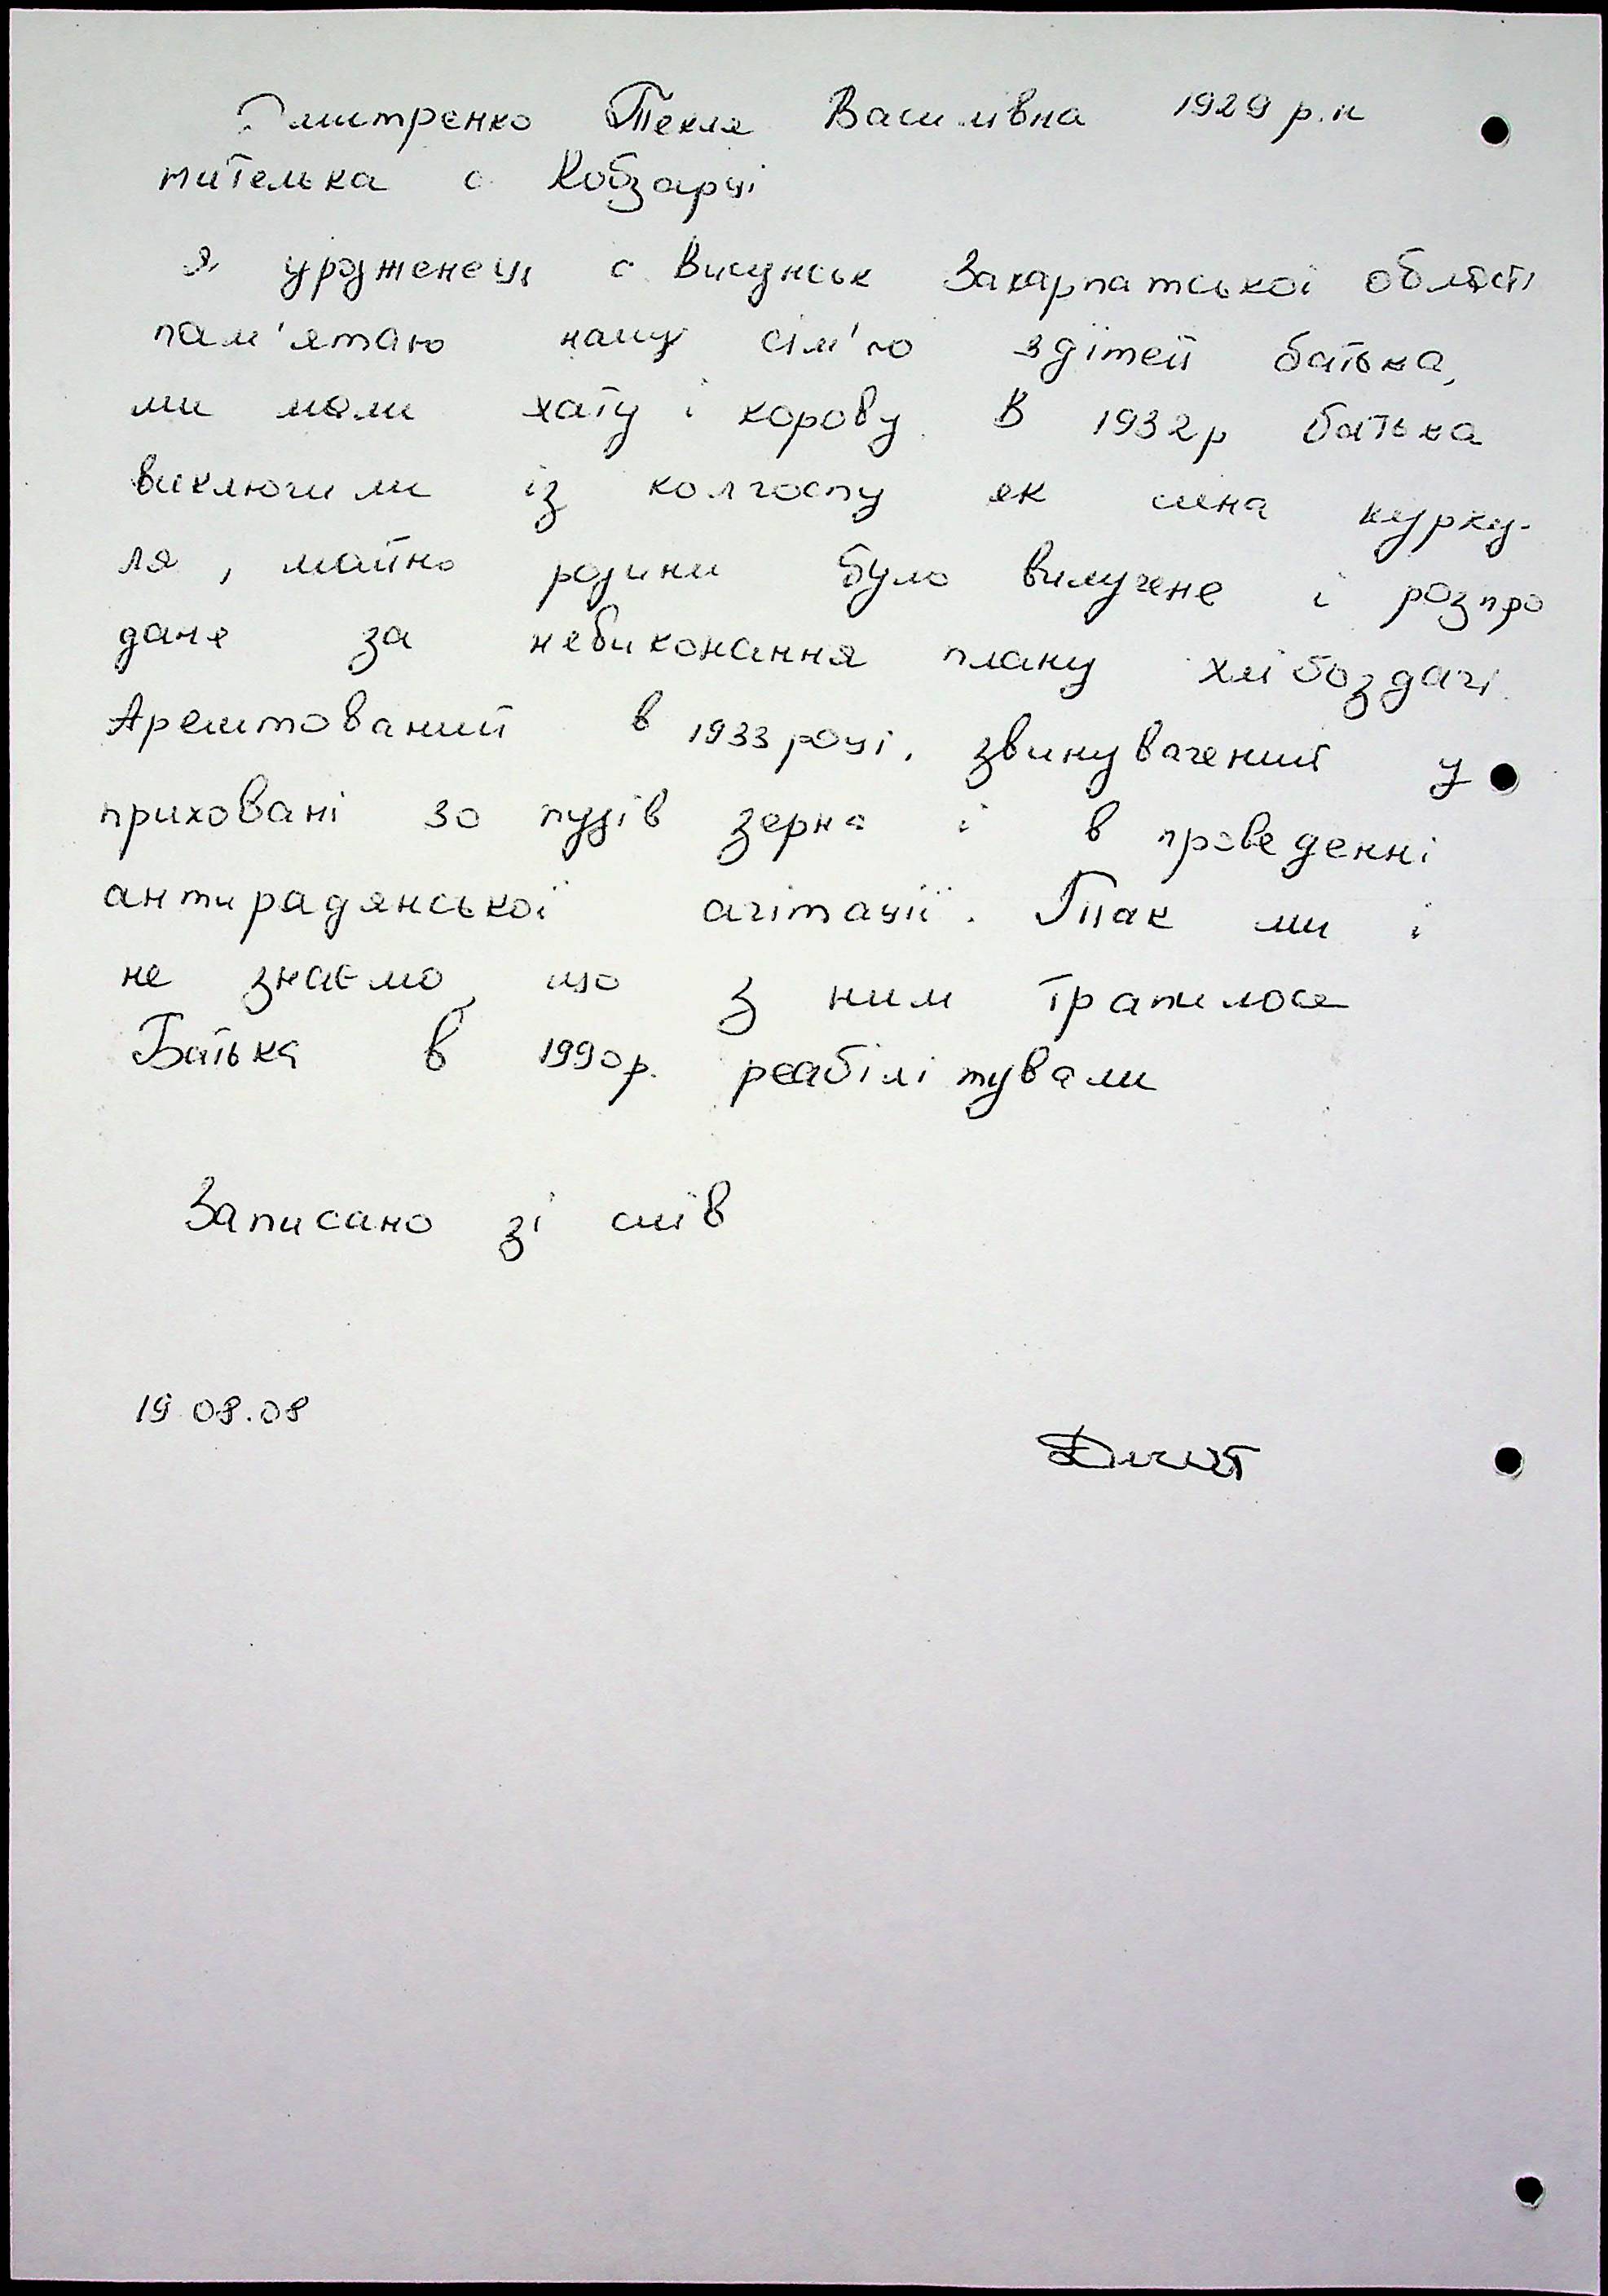 Дмитренко Текля Василівна 1929 р.н
жителька с. Кобзарці
Я уродженець с. Висунськ Закарпатської області
пам'ятаю нашу сім'ю 3 дітей батька,
ми мали хату і корову. В 1932р батька
виключили із колгоспу як сина курку-
ля, майно родини було вилучене і розпро
дане за невиконання плану хлібоздачі.
Арештований в 1933 році, звинувачений у
приховані 30 пудів зерна і в проведенні
антирадянської агітації. Так ми і
не знаємо, що з ним трапилося
Батька в 1990р. реабілітували
Записано зі слів
19.08.08